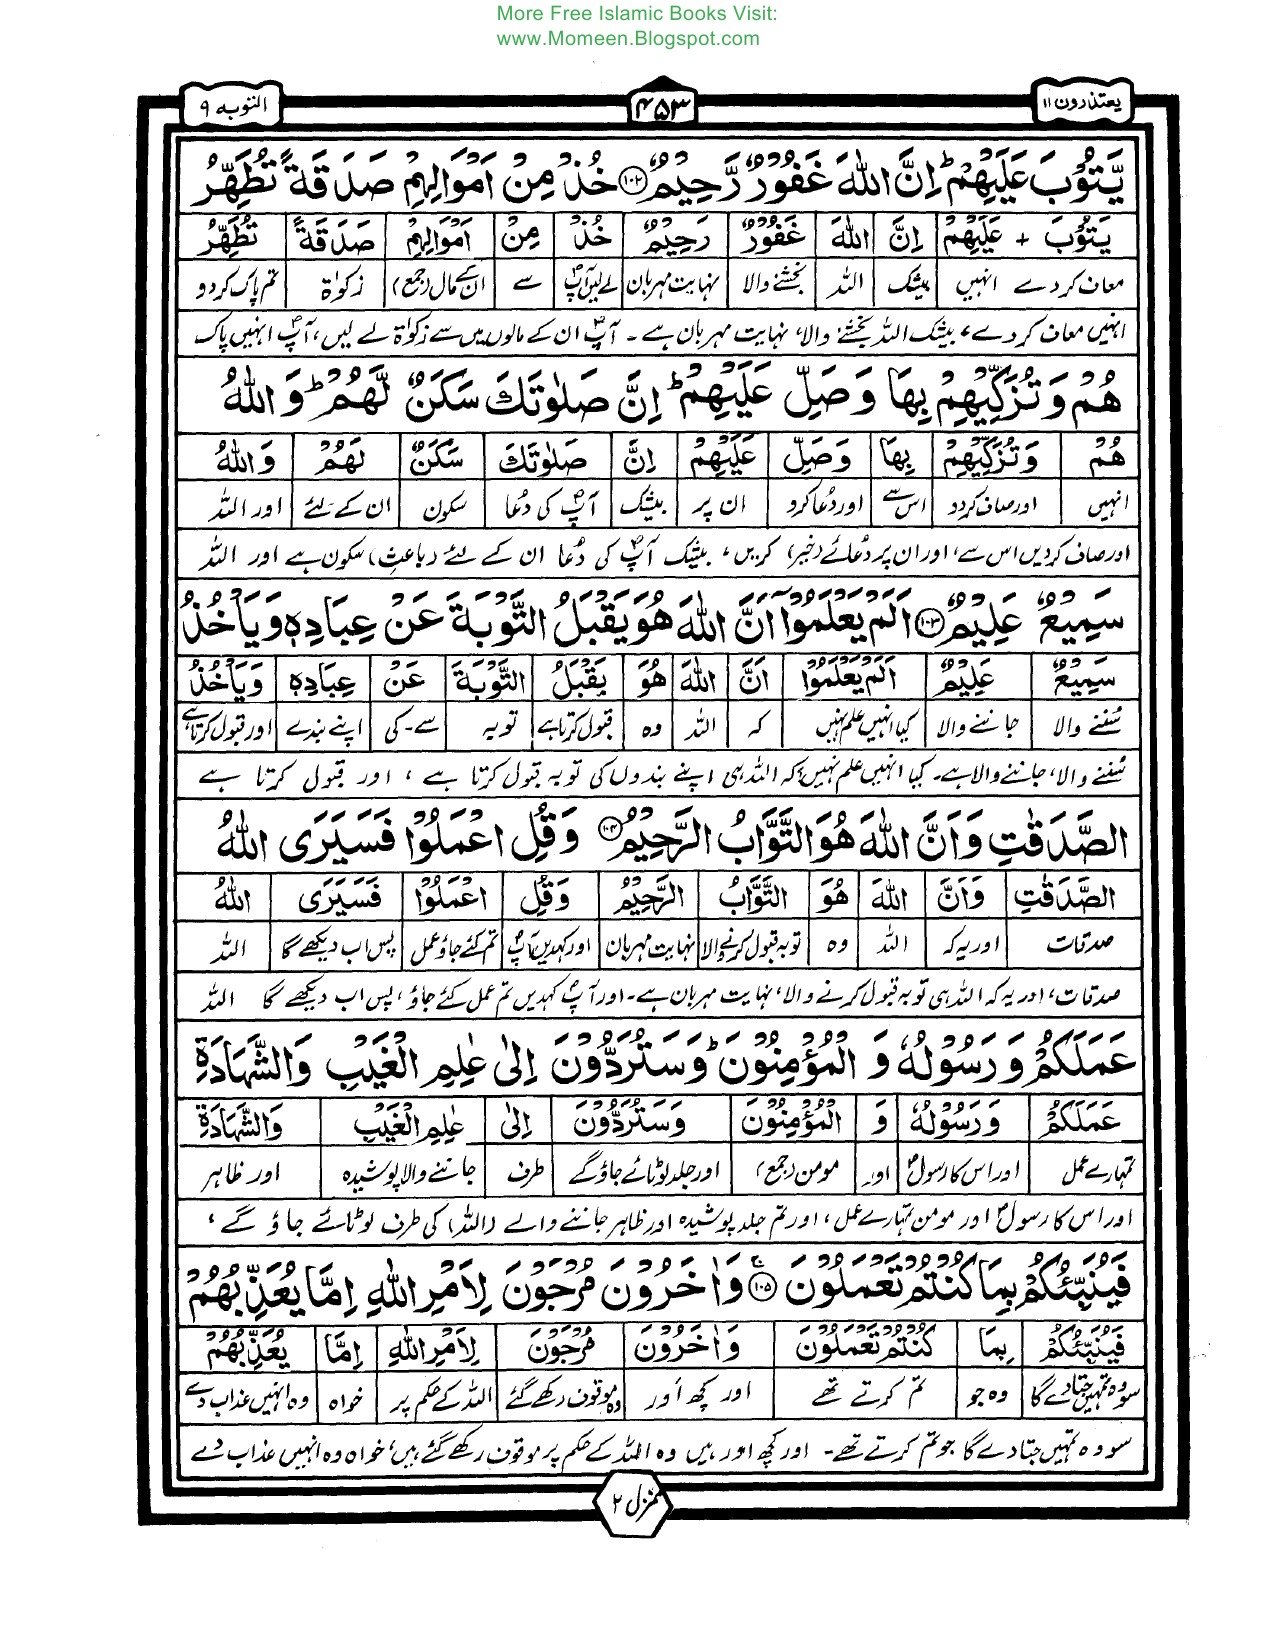 More Free Islamic Books Visit:
www.Momeen.Blogspot.com
یعتذرون ۱۱ ۴۵۳ التوبه ۹
یَّتُوْبَ عَلَیْهِمْ ؕ اِنَّ اللّٰهَ غَفُوْرٌ رَّحِیْمٌ ۱۰۲ خُذْ مِنْ اَمْوَالِهِمْ صَدَقَةً تُطَهِّرُ
یَتُوْبَ + عَلَیْهِمْ اِنَّ اللّٰهَ غَفُوْرٌ رَحِیْمٌ خُذْ مِنْ اَمْوَالِهِمْ صَدَقَةً تُطَهِّرُ
معاف کردے انہیں بیشک اللہ بخشنے والا نہایت مہربان لے لیں آپؐ سے ان کے مال (جمع) زکوٰۃ تم پاک کردو
انہیں معاف کر دے، بیشک اللہ بخشنے والا، نہایت مہربان ہے۔ آپؐ ان کے مالوں میں سے زکوٰۃ لے لیں، آپؐ انہیں پاک
هُمْ وَ تُزَكِّیْهِمْ بِهَا وَ صَلِّ عَلَیْهِمْ ؕ اِنَّ صَلٰوتَكَ سَكَنٌ لَّهُمْ ؕ وَ اللّٰهُ
هُمْ وَتُزَكِّیْهِمْ بِهَا وَ صَلِّ عَلَیْهِمْ اِنَّ صَلٰوتَكَ سَكَنٌ لَهُمْ وَ اللّٰهُ
انہیں اور صاف کردو اس سے اور دُعا کرو ان پر بیشک آپؐ کی دُعا سکون ان کے لئے اور اللہ
اور صاف کردیں اس سے، اور ان پر دُعائے (خیر) کریں، بیشک آپؐ کی دُعا ان کے لئے (باعثِ) سکون ہے اور اللہ
سَمِیْعٌ عَلِیْمٌ ۱۰۳ اَلَمْ یَعْلَمُوْۤا اَنَّ اللّٰهَ هُوَ یَقْبَلُ التَّوْبَةَ عَنْ عِبَادِهٖ وَ یَاْخُذُ
سَمِیْعٌ عَلِیْمٌ اَلَمْ یَعْلَمُوْا اَنَّ اللّٰهَ هُوَ یَقْبَلُ التَّوْبَةَ عَنْ عِبَادِهٖ وَیَاْخُذُ
سُننے والا جاننے والا کیا انہیں علم نہیں کہ اللہ وہ قبول کرتا ہے توبہ سے۔کی اپنے بندے اور قبول کرتا ہے
سُننے والا، جاننے والا ہے۔ کیا انہیں علم نہیں؟ کہ اللہ ہی اپنے بندوں کی توبہ قبول کرتا ہے، اور قبول کرتا ہے
الصَّدَقٰتِ وَ اَنَّ اللّٰهَ هُوَ التَّوَّابُ الرَّحِیْمُ ۱۰۴ وَ قُلِ اعْمَلُوْا فَسَیَرَى اللّٰهُ
الصَّدَقٰتِ وَاَنَّ اللّٰهَ هُوَ التَّوَّابُ الرَّحِیْمُ وَقُلِ اعْمَلُوْا فَسَیَرَى اللّٰهُ
صدقات اور یہ کہ اللہ وہ توبہ قبول کرنے والا نہایت مہربان اور کہدیں آپؐ تم کئے جاؤ عمل پس اب دیکھے گا اللہ
صدقات، اور یہ کہ اللہ ہی توبہ قبول کرنے والا، نہایت مہربان ہے۔ اور آپؐ کہدیں تم عمل کئے جاؤ، پس اب دیکھے گا اللہ
عَمَلَكُمْ وَ رَسُوْلُهٗ وَ الْمُؤْمِنُوْنَ ؕ وَ سَتُرَدُّوْنَ اِلٰى عٰلِمِ الْغَیْبِ وَ الشَّهَادَةِ
عَمَلَكُمْ وَ رَسُوْلُهٗ وَ الْمُؤْمِنُوْنَ وَسَتُرَدُّوْنَ اِلٰى عٰلِمِ الْغَیْبِ وَالشَّهَادَةِ
تمہارے عمل اور اس کا رسولؐ اور مومن (جمع) اور جلد لوٹائے جاؤگے طرف جاننے والا پوشیدہ اور ظاہر
اور اس کا رسولؐ اور مومن تمہارے عمل، اور تم جلد پوشیدہ اور ظاہر جاننے والے (اللہ) کی طرف لوٹائے جاؤ گے،
فَیُنَبِّئُكُمْ بِمَا كُنْتُمْ تَعْمَلُوْنَ ۱۰۵ وَ اٰخَرُوْنَ مُرْجَوْنَ لِاَمْرِ اللّٰهِ اِمَّا یُعَذِّبُهُمْ
فَیُنَبِّئُكُمْ بِمَا كُنْتُمْ تَعْمَلُوْنَ وَاٰخَرُوْنَ مُرْجَوْنَ لِاَمْرِ اللّٰهِ اِمَّا یُعَذِّبُهُمْ
سو وہ تمہیں جتا دے گا وہ جو تم کرتے تھے اور کچھ اَور وہ موقوف رکھے گئے اللہ کے حکم پر خواہ وہ انہیں عذاب دے
سو وہ تمہیں جتا دے گا جو تم کرتے تھے۔ اور کچھ اور ہیں وہ اللہ کے حکم پر موقوف رکھے گئے ہیں، خواہ وہ انہیں عذاب دے
منزل ۲